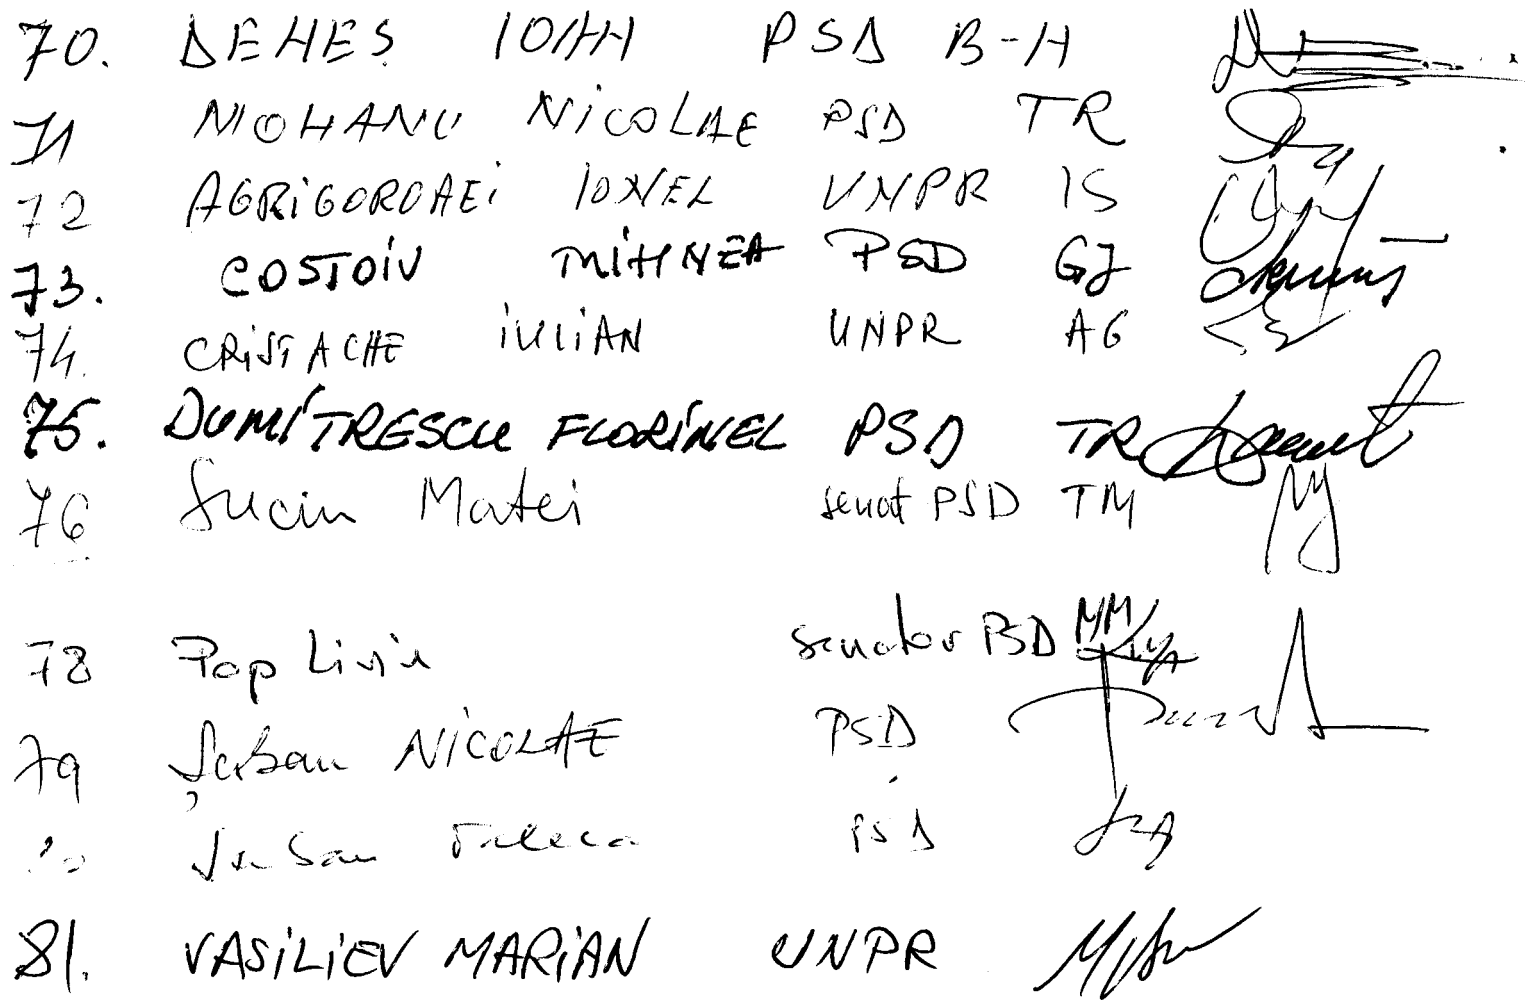 70. DENES IOAN PSD B-N
71 MOHANU NICOLAE PSD TR
72 AGRIGOROAEI IONEL UNPR IS
73. COSTOIU MIHNEA PSD GJ
74. CRISTACHE IULIAN UNPR AG
75. DUMITRESCU FLORINEL PSD TR
76 Suciu Matei senat PSD TM
78 Pop Liviu senator PSD MM
79 Șerban NICOLAE PSD
PSD
81. VASILIEV MARIAN UNPR